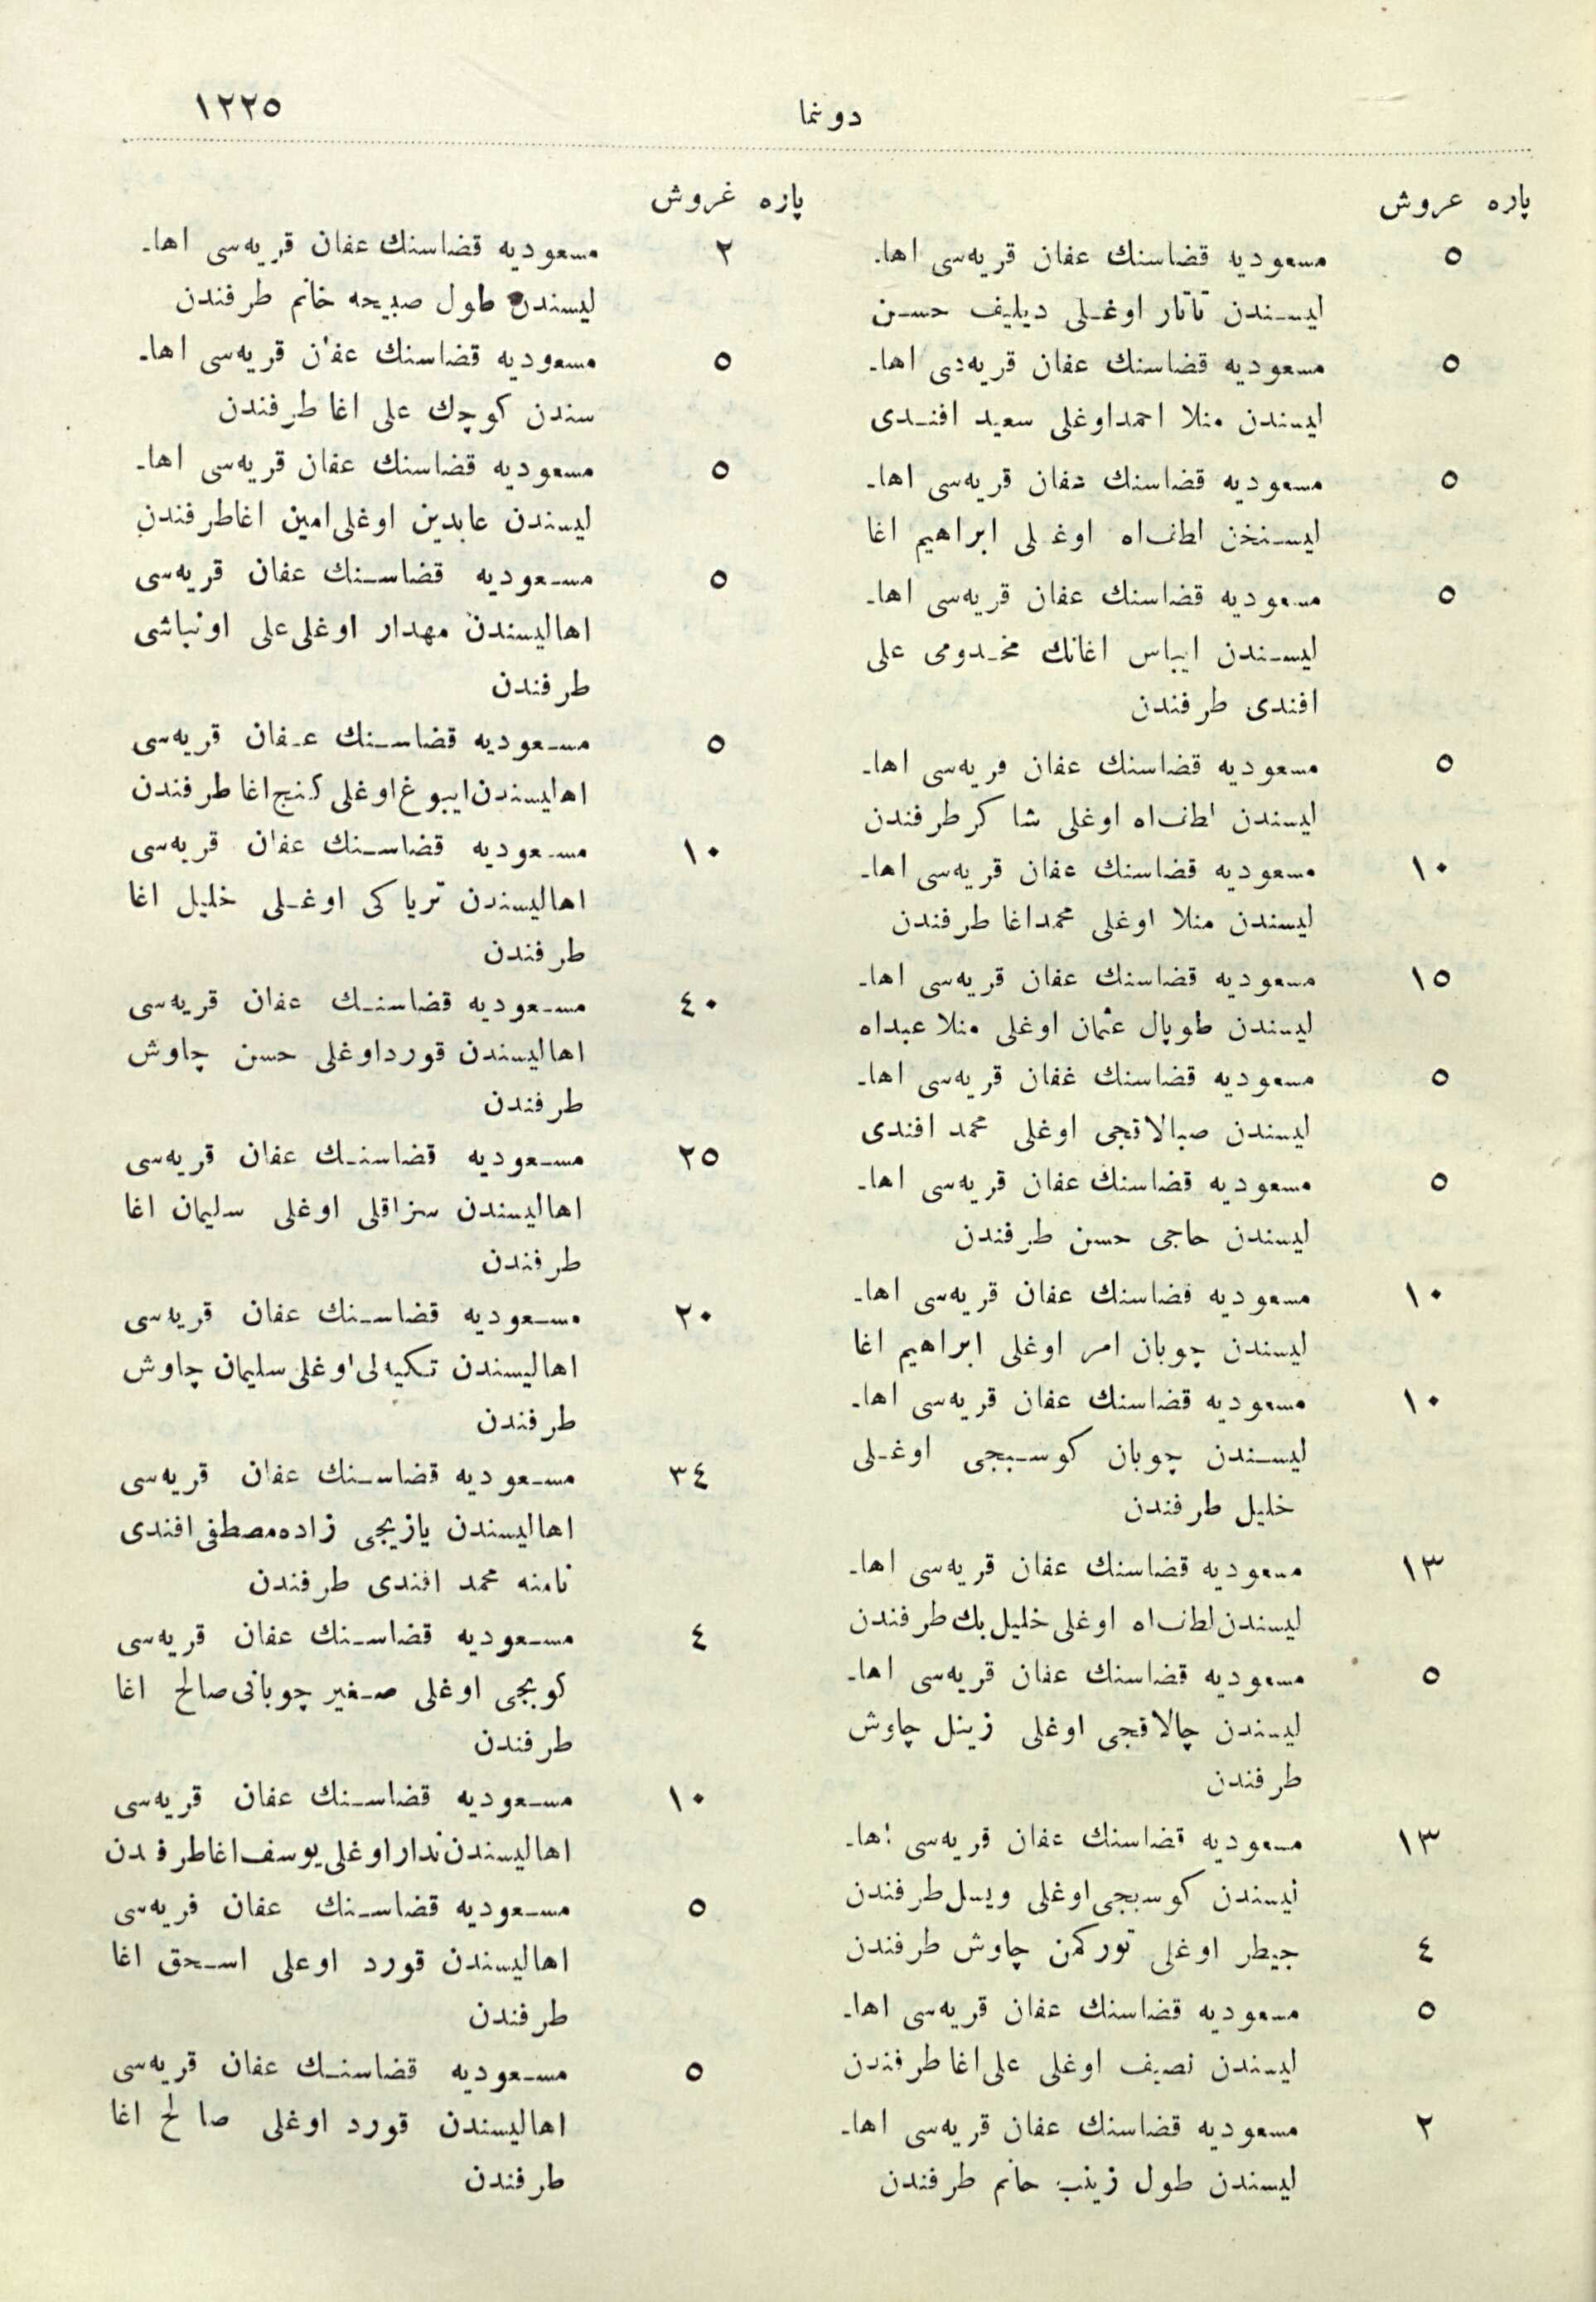 دونما
١٢٢٥
پاره غروش
٥ مسعوديه قضاسنك عفان قريه‌سى اها-
ليسندن تاتار اوغلى ديليف حسن
٥ مسعوديه قضاسنك عفان قريه‌سى اها-
ليسندن منلا احمداوغلى سعيد افندى
٥ مسعوديه قضاسنك عفان قريه‌سى اها-
ليسنخن لطف‌اه اوغلى ابراهيم اغا
٥ مسعوديه قضاسنك عفان قريه‌سى اها-
ليسندن ايباس اغانك مخدومى على
افندى طرفندن
٥ مسعوديه قضاسنك عفان قريه‌سى اها-
ليسندن لطف‌اه اوغلى شاكر طرفندن
١٠ مسعوديه قضاسنك عفان قريه‌سى اها-
ليسندن منلا اوغلى محمداغا طرفندن
١٥ مسعوديه قضاسنك عفان قريه‌سى اها-
ليسندن طوپال عثمان اوغلى منلا عبداه
٥ مسعوديه قضاسنك غفان قريه‌سى اها-
ليسندن صبالاقجى اوغلى محمد افندى
٥ مسعوديه قضاسنك عفان قريه‌سى اها-
ليسندن حاجى حسن طرفندن
١٠ مسعوديه قضاسنك عفان قريه‌سى اها-
ليسندن چوبان امر اوغلى ابراهيم اغا
١٠ مسعوديه قضاسنك عفان قريه‌سى اها-
ليسندن چوبان كوسبجى اوغلى
خليل طرفندن
١٣ مسعوديه قضاسنك عفان قريه‌سى اها-
ليسندن لطف‌اه اوغلى خليل بك طرفندن
٥ مسعوديه قضاسنك عفان قريه‌سى اها-
ليسندن چالاقجى اوغلى زينل چاوش
طرفندن
١٣ مسعوديه قضاسنك عفان قريه‌سى اها-
ليسندن كوسبجى اوغلى ويسل طرفندن
٤ جيطر اوغلى توركمن چاوش طرفندن
٥ مسعوديه قضاسنك عفان قريه‌سى اها-
ليسندن نصيف اوغلى على اغا طرفندن
٢ مسعوديه قضاسنك عفان قريه‌سى اها-
ليسندن طول زينب خانم طرفندن
پاره غروش
٢ مسعوديه قضاسنك عفان قريه‌سى اها-
ليسندن طول صبيحه خانم طرفندن
٥ مسعوديه قضاسنك عفان قريه‌سى اها-
سندن كوچك على اغا طرفندن
٥ مسعوديه قضاسنك عفان قريه‌سى اها-
ليسندن عابدين اوغلى امين اغا طرفندن
٥ مسعوديه قضاسنك عفان قريه‌سى
اهاليسندن مهدار اوغلى على اونباشى
طرفندن
٥ مسعوديه قضاسنك عفان قريه‌سى
اهاليسندن ايبوغ اوغلى كنج اغا طرفندن
١٠ مسعوديه قضاسنك عفان قريه‌سى
اهاليسندن ترياكى اوغلى خليل اغا
طرفندن
٤٠ مسعوديه قضاسنك عفان قريه‌سى
اهاليسندن قورداوغلى حسن چاوش
طرفندن
٢٥ مسعوديه قضاسنك عفان قريه‌سى
اهاليسندن سزاقلى اوغلى سليمان اغا
طرفندن
٢٠ مسعوديه قضاسنك عفان قريه‌سى
اهاليسندن تكيه‌لى اوغلى سليمان چاوش
طرفندن
٣٤ مسعوديه قضاسنك عفان قريه‌سى
اهاليسندن يازيجى زاده مصطفى افندى
نامنه محمد افندى طرفندن
٤ مسعوديه قضاسنك عفان قريه‌سى
كوبجى اوغلى صغير چوبانى صالح اغا
طرفندن
١٠ مسعوديه قضاسنك عفان قريه‌سى
اهاليسندن ندار اوغلى يوسف اغا طرفدن
٥ مسعوديه قضاسنك عفان قريه‌سى
اهاليسندن قورد اوغلى اسحق اغا
طرفندن
٥ مسعوديه قضاسنك عفان قريه‌سى
اهاليسندن قورد اوغلى صالح اغا
طرفندن